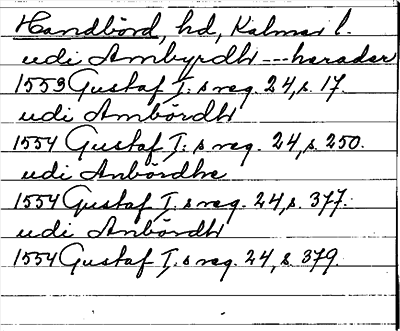 Handbörd, hd, Kalmar l.
udi Ambyrdh --- harader
1553 Gustaf I:s reg. 24, s. 17.
udi Ambördh
1554 Gustaf I:s reg. 24, s. 250.
udi Anbördhe
1554 Gustaf I.s reg. 24, s. 377.
udi Anbördh
1554 Gustaf I.s reg. 24, s. 379.